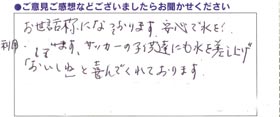 ●ご意見ご感想などございましたらお聞かせください
お世話様になっております。安心で水を
利用
します。サッカーの子供達にも水を差し上げ
「おいしいね」と喜んでくれております。